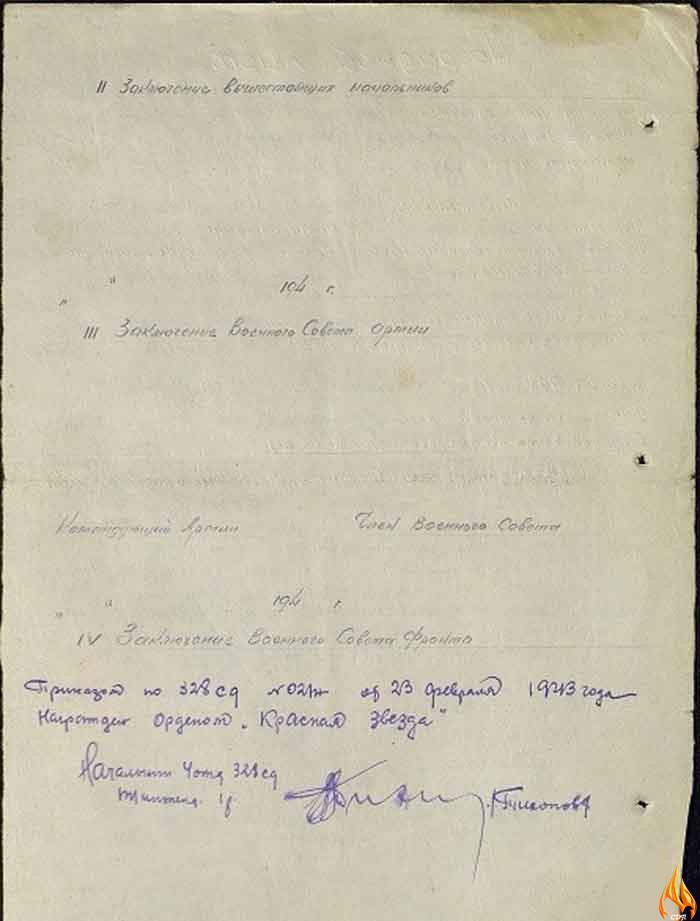 II Заключение вышестоящих начальников
" " 194 г.
III Заключение Военного Совета армии
Командующий Армии Член Военного Совета
" " 194 г.
IV Заключение Военного Совета Фронта
Приказом по 328 сд № 021/н от 23 февраля 1943 года
Награжден Орденом „Красная Звезда"
Начальник 328 сд